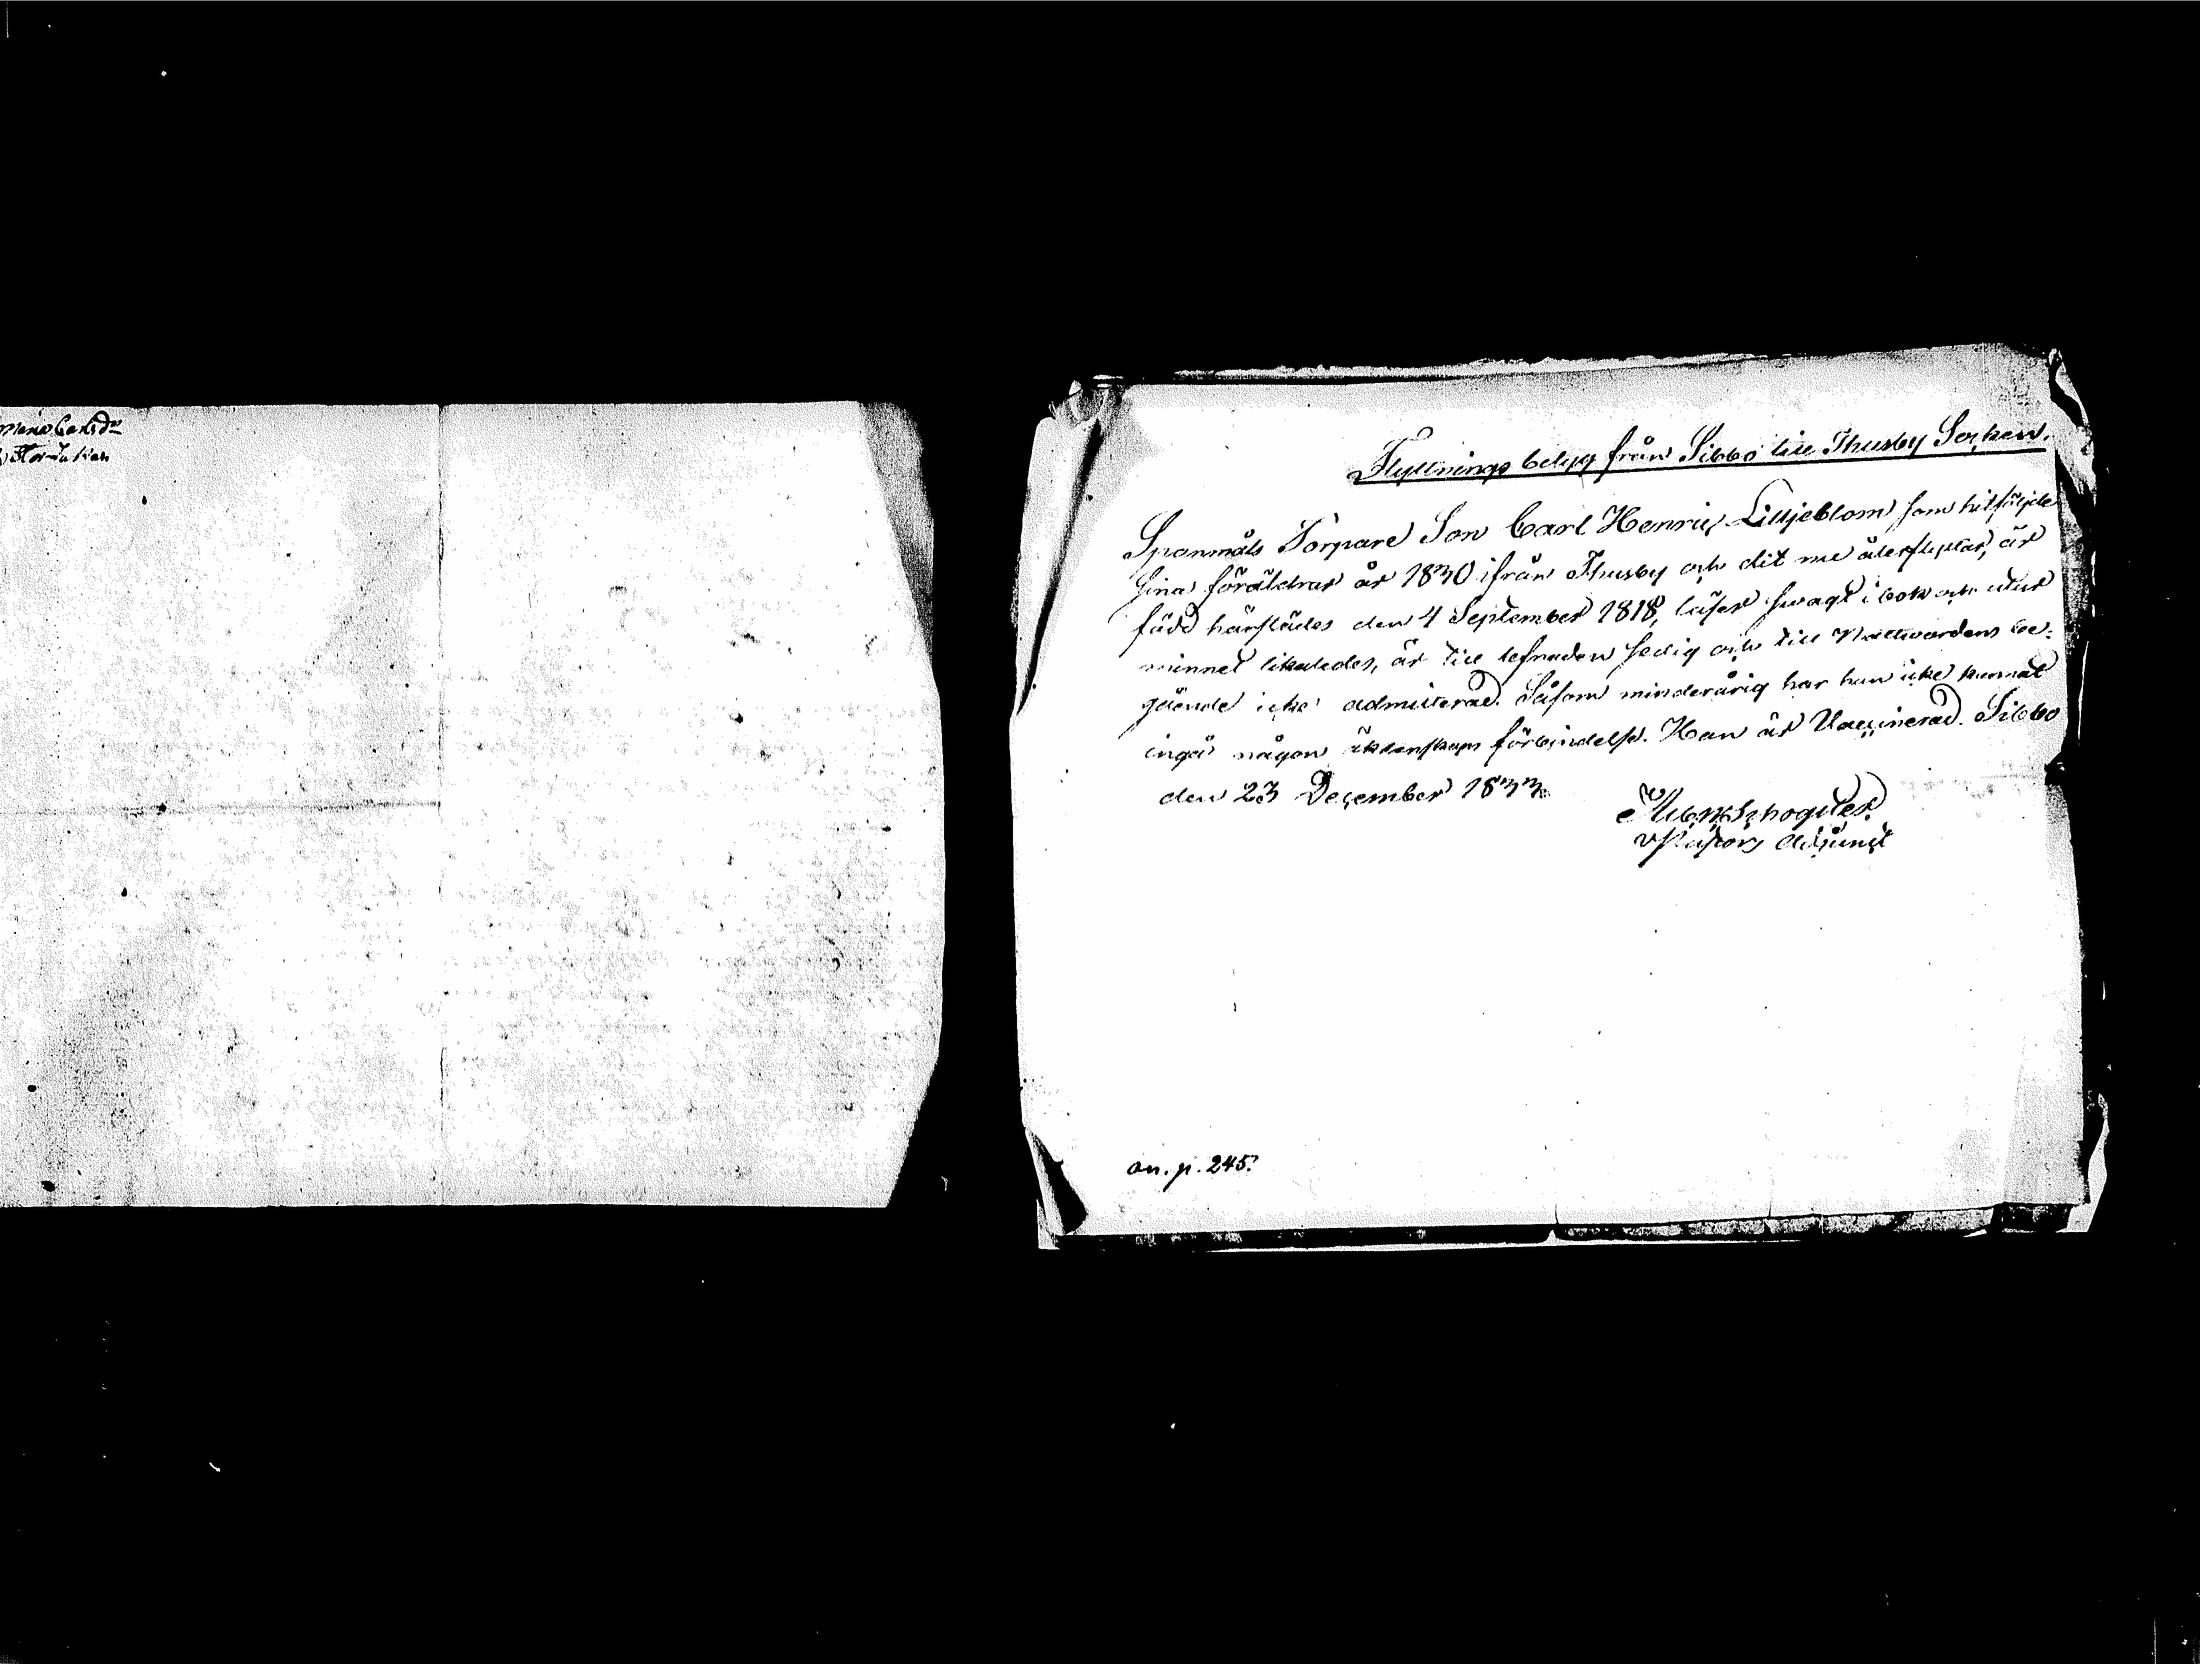 Maria Carlsd:r
Flyttnings betyg från Sibbo till Thusby Sochen.
Spanmåls Torpare Son Carl Henric Liljeblom, som hitföljde
sina föräldrar år 1830 ifrån Thusby och dit nu återflyttar, är
född härstädes den 4 September 1818, läser svagt i bok och utur
minnet likaledes, är till lefnaden sedig och till Nattvardens be-
gående icke admitterad. Såsom minderårig har han icke kunnat
ingå någon äktenskaps förbindelse. Han är Vaccinerad. Sibbo
den 23 December 1833.
v Pastors Adjunct
an. p. 245.